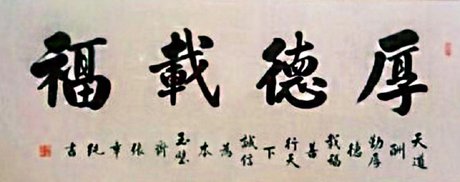 厚德載福
天道酬勤厚德載福善行天下誠信為本